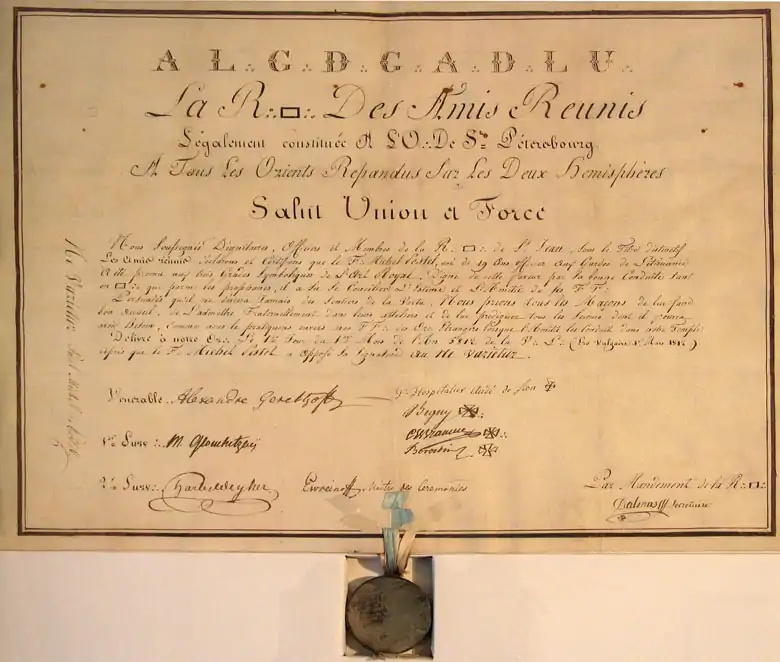 A L∴ G∴ D∴ G∴ A∴ D∴ L∴ U∴
La R∴ ▭∴ Des Amis Reunis
Légalement constituée A L'O∴ De St. Pétersbourg
A Tous Les Orients Repandus Sur Les Deux Hemisphères
Salut Union et Force
Nous Soussignés Dignitaires, Officiers et Membres de la R∴ ▭∴ de St. Jean, sous le Titre distinctif
Les Amis réunis déclarons et Certifions que le F∴ Michel Pestel, de 19 Ans officier aux Gardes de
A été promu aux trois Grades Symboliques de l'Art Royal, Digne de cette faveur par la bonne Conduite
▭∴ que parmi les prophanes, il a su Se Concilier L'Estime et L'Amitié de ses F∴ F∴
qu'il ne déviera Jamais des Sentiers de la Vertu, Nous prions tous les Maçons de lui faire
bon accueil, de L'admettre Fraternellement dans leurs atteliers et de lui prodiguer tous les Secours dont il pourra
avoir Besoin, Comme nous le pratiquons envers nos F∴ F∴ des Or∴ Etrangers lorsque l'Amitié les Conduit dans notre Temple
Délivré à notre Or∴ Le 1er Jour du 1er Mois de l'An 5812 de la V∴ L∴ (Ere Vulgaire 1er Mars 1812)
après que le F∴ Michel Pestel a apposé Sa Signature Au Ne Varietur.
Ne Varietur
Venerable Alexandre Gerebzoff
1er Surv∴ M.
2d Surv∴
Maitre des Ceremonies
Hospitalier
Par Mandement de la R∴ ▭∴
Secretaire